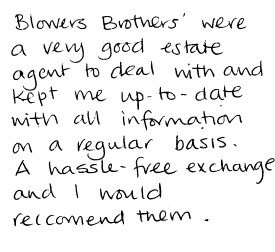 Blowers Brothers' were
a very good estate
agent to deal with and
kept me up-to-date
with all information
on a regular basis.
A hassle-free exchange
and I would
reccomend them.